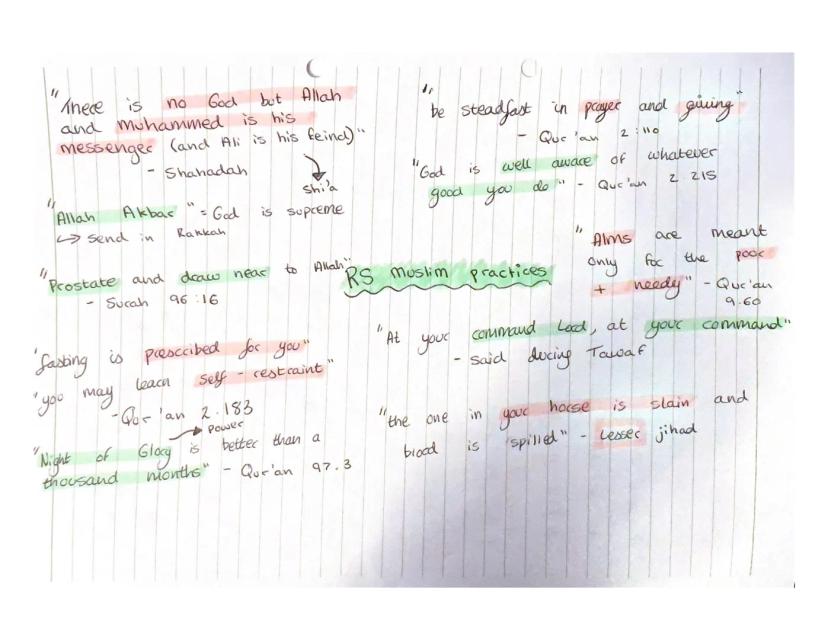 "There is no God but Allah
and muhammed is his
messenger (and Ali is his feind)"
- Shahadah
Shi'a
"Allah Akbar" = God is supreme
↳ send in Rakkah
"Prostate and draw near to Allah"
- Surah 96:16
"fasting is prescribed for you"
"you may learn self-restraint"
- Qur'an 2.183
power
"Night of Glory is better than a
thousand months" - Qur'an 97.3
RS muslim practices
"be steadfast in prayer and giving"
- Qur'an 2:110
"God is well aware of whatever
good you do" - Qur'an 2 215
"Alms are meant
only for the poor
+ needy" - Qur'an
9.60
"At your command Lord, at your command"
- said during Tawaf
"the one in your horse is slain and
blood is spilled" - Lesser jihad